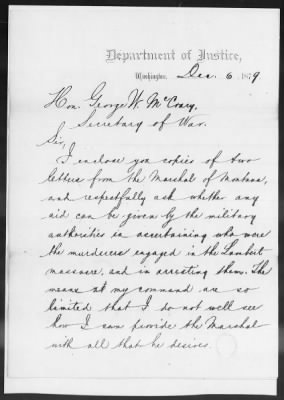 Department of Justice,
Washington, Dec. 6, 1879
Hon. George W. McCrary,
Secretary of War.
Sir,
I enclose you copies of two
letters from the Marshal of Montana,
and respectfully ask whether any
aid can be given by the military
authorities in ascertaining who were
the murderers engaged in the Lambert
massacre, and in arresting them. The
means at my command are so
limited that I do not well see
how I can provide the Marshal
with all that he desires.